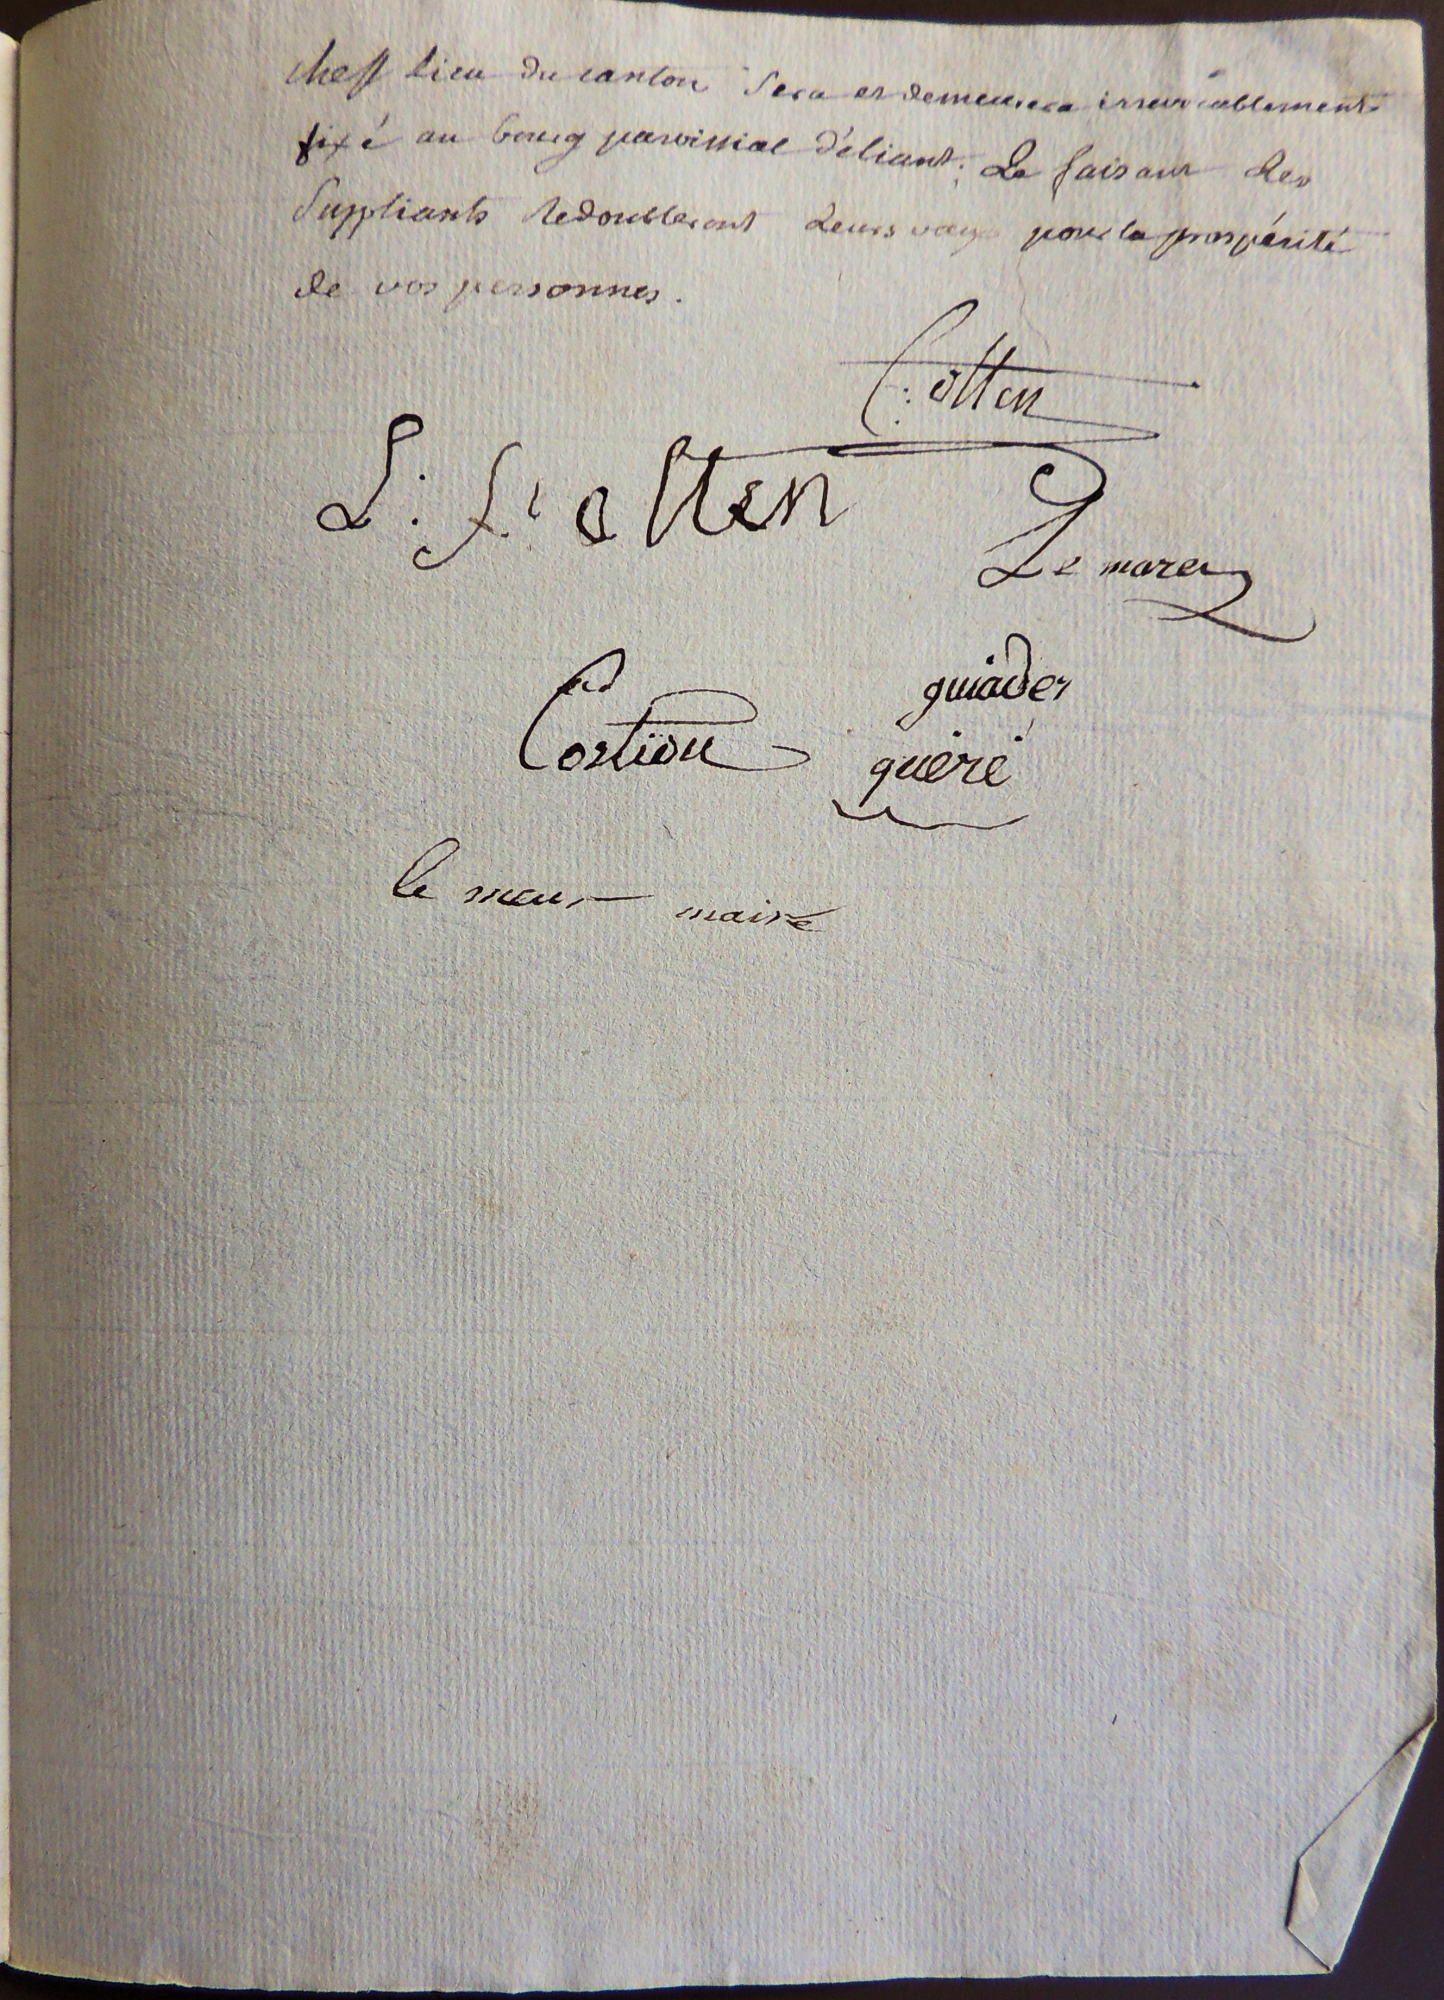 cheff lieu du canton Sera et demeurera irrevocablement
fixé au bourg paroissial d'éliant; Le faisant les
Suppliants redoubleront Leurs vœux pour la prospérité
de vos personnes.
C: otten
L: f: otten
Le mare
guiader
Costiou
guéré
le meur maire